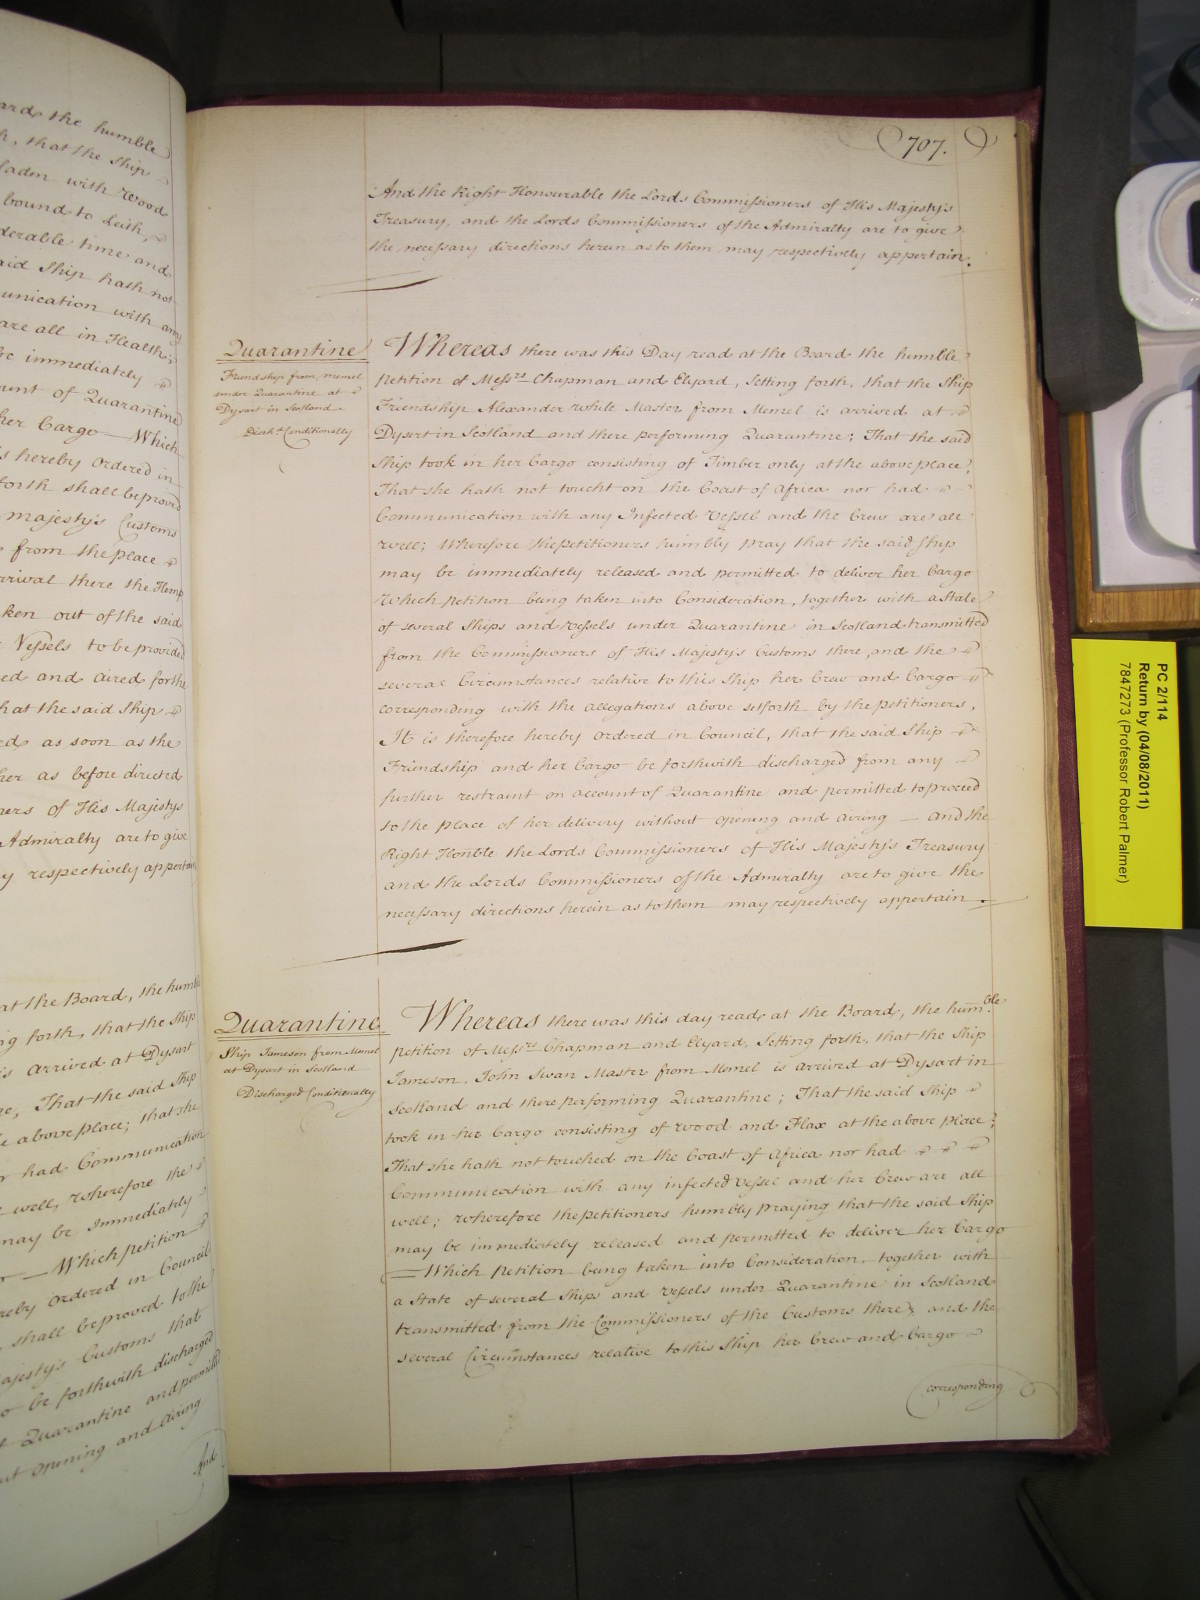 ards the humble
h, that the Ship
laden with Wood
bound to Leith,
derable time and
aid Ship hath not
unication with any
are all in Health;
be immediately
ount of Quarantine
her Cargo — Which
s hereby Ordered in
forth shall be proved
Majesty's Customs
from the place
rrival there the Hemp
ken out of the said
Vessels to be provided
ed and aired for the
hat the said Ship
ed as soon as the
her as before directed
ners of His Majestys
Admiralty are to give
y respectively appertain
at the Board, the humble
ng forth, that the Ship
is arrived at Dysart
ne, That the said Ship
e above place; that she
r had Communication
well, Wherefore the
may be immediately
— Which Petition
reby Ordered in Council
shall be proved to the
ajesty's Customs that
o be forthwith discharged
Quarantine and permitted
ut opening and airing
And
707.
And the Right Honourable the Lords Commissioners of His Majesty's
Treasury, and the Lords Commissioners of the Admiralty are to give
the necessary directions herein as to them may respectively appertain.
Quarantine
Friendship from Memel
under Quarantine at
Dysart in Scotland
Disch.d Conditionally
Whereas there was this Day read at the Board the humble
Petition of Mess.rs Chapman and Elyard, Setting forth, that the Ship
Friendship Alexander White Master from Memel is arrived at
Dysert in Scotland and there performing Quarantine; That the said
Ship took in her Cargo consisting of Timber only at the above place;
That she hath not toucht on the Coast of Africa nor had
Communication with any Infected Vessel and the Crew are all
well; Wherefore the petitioners humbly pray that the said Ship
may be immediately released and permitted to deliver her Cargo
Which Petition being taken into Consideration, together with a State
of several Ships and Vessels under Quarantine in Scotland transmitted
from the Commissioners of His Majesty's Customs there, and the
several Circumstances relative to this Ship her Crew and Cargo
corresponding with the allegations above setforth by the petitioners,
It is therefore hereby Ordered in Council, that the said Ship
Friendship and her Cargo be forthwith discharged from any
further restraint on account of Quarantine and permitted to proceed
to the place of her delivery without opening and airing — And the
Right Honble the Lords Commissioners of His Majesty's Treasury
and the Lords Commissioners of the Admiralty are to give the
necessary directions herein as to them may respectively appertain.
Quarantine
Ship Jameson from Memel
at Dysart in Scotland
Discharged Conditionally
Whereas there was this day read at the Board, the hum.ble
petition of Mess.rs Chapman and Elyard, Setting forth, that the Ship
Jameson, John Swan Master from Memel is arrived at Dysart in
Scotland and there performing Quarantine; That the said Ship
took in her Cargo consisting of Wood and Flax at the above place;
That she hath not touched on the Coast of Africa nor had
Communication with any infected Vessel and her Crew are all
well; Wherefore the petitioners humbly praying that the said Ship
may be immediately released and permitted to deliver her Cargo
— Which Petition being taken into Consideration, together with
a State of several Ships and Vessels under Quarantine in Scotland
transmitted from the Commissioners of the Customs there; and the
several Circumstances relative to this Ship her Crew and Cargo
corresponding
PC 2/114
Return by (04/08/2011)
7847273 (Professor Robert Palmer)